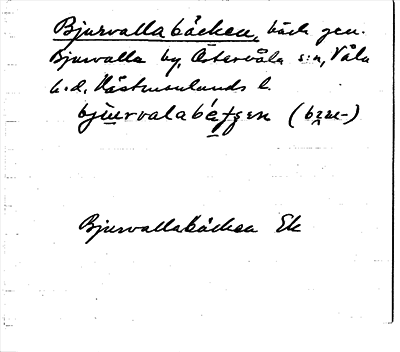 Bjurvallabäcken, bäck gen.
Bjurvalla by, Östervåla s:n, Våla
h.d, Västmanlands l.
Bjurvallabäcken Ek